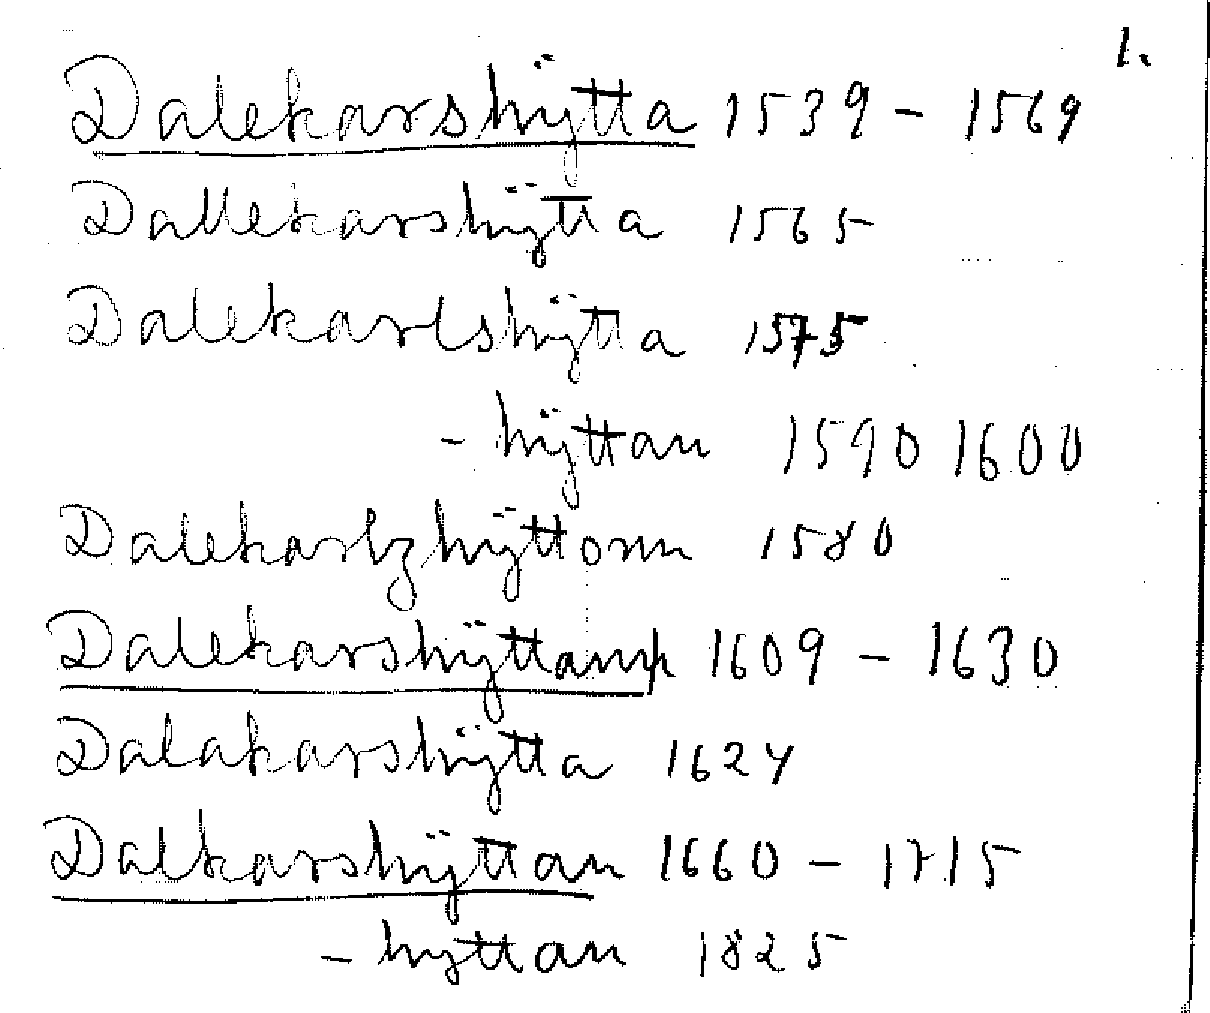 1.
Dalekarshÿtta 1539 – 1569
Dallekarshÿtta 1565
Dalekarlshÿtta 1575
– hÿttan 1590 1600
Dalekarlzhÿttonn 1580
Dalekarshÿttann 1609 – 1630
Dalakarshÿtta 1624
Dalkarshÿttan 1660 – 1715
– hyttan 1825